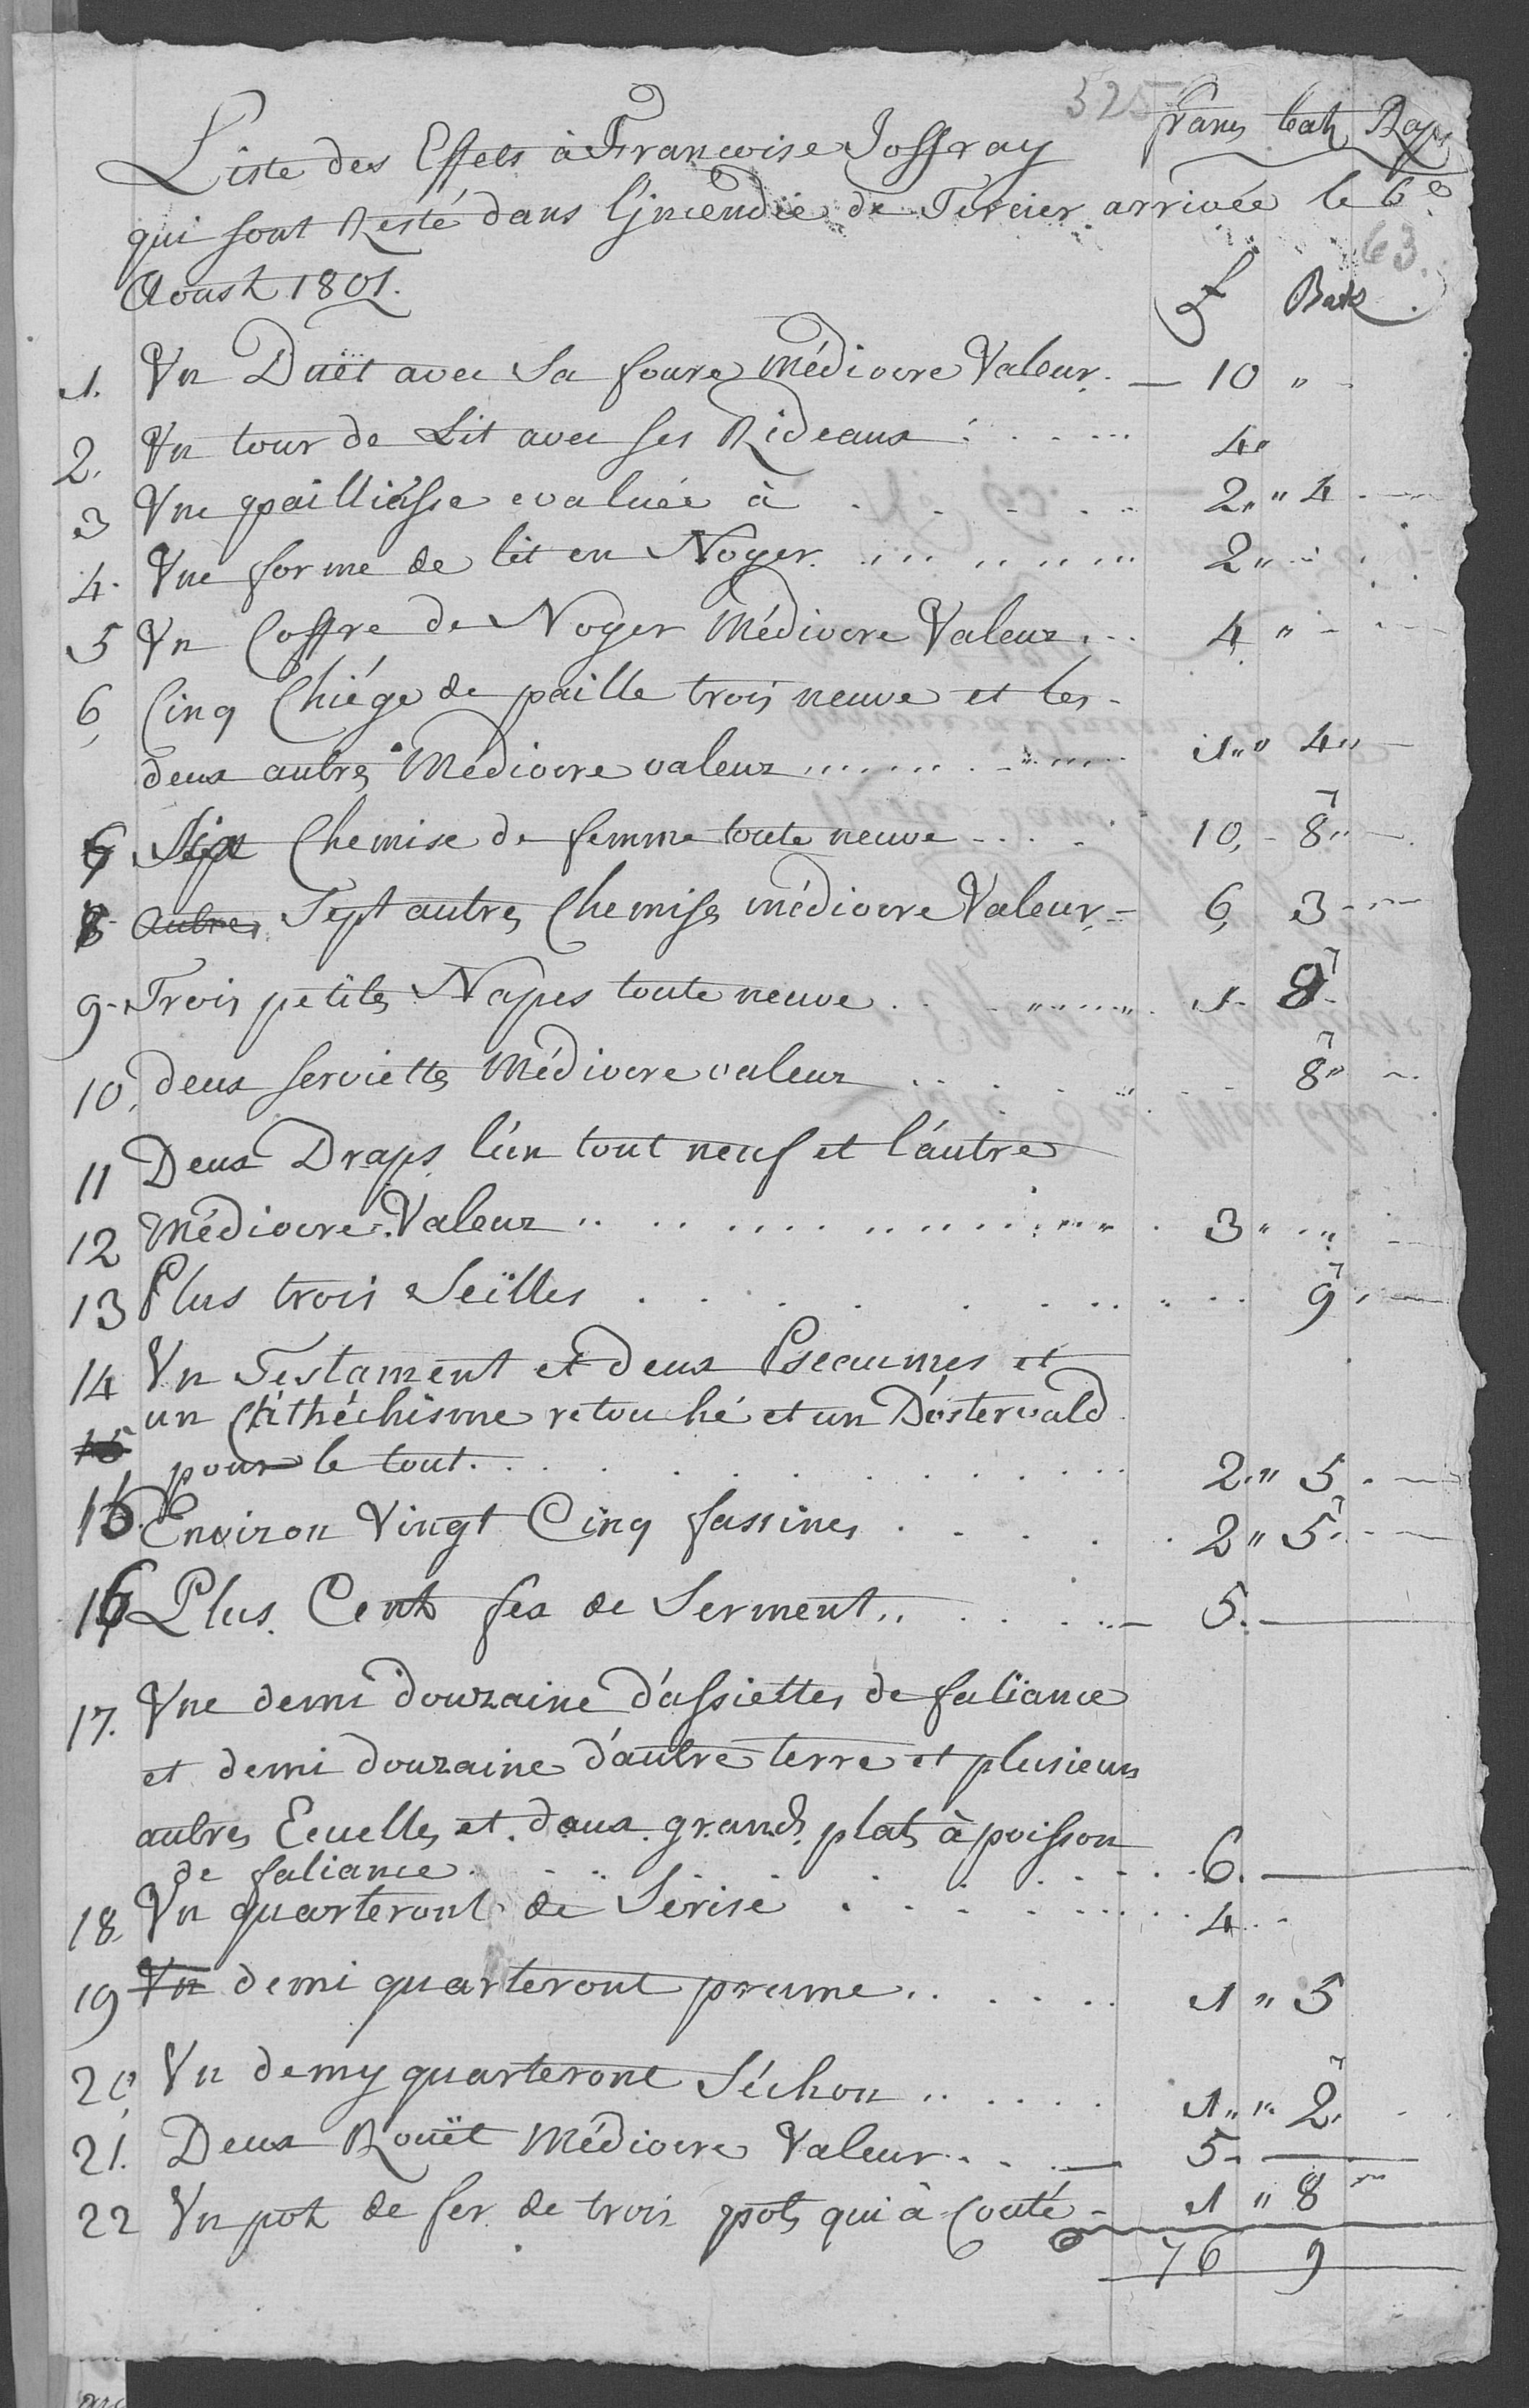 525
francs batz Rap
Liste des Effets à Francoise Joffray
qui sont Resté dans l'jncendie de Tercier arrivée le 6e
63
Aoust 1801.
£ Batz
1. Vn Duët avec Sa foure Médiocre Valeur. — 10 "
2. Vn tour de Lit avec ses Rideaux . . . . 4"
3 Vne pailliasse evaluée à . . . . . 2 " 4
4. Vne forme de lit en Noyer . . . . . 2 "
5 Vn Coffre de Noyer Médiocre Valeur . . . 4 "
6, Cinq Chiége de paille trois neuve et les
deux autres Médiocre valeur . . . . . 1 " 4 "
7 Six Chemise de femme toute neuve . . . . 10, 8 "
8 Autres Sept autres Chemises médiocre Valeur - 6, 3
9 - Trois petites Napes toute neuve . . . . . 1 - 8
10, deux serviettes Médiocre valeur . . . . . 8 "
11 Deux Draps l'un tout neuf et l'autre
12 Médiocre Valeur . . . . . 3 "
13 Plus trois Seïlles . . . . . 9
14 Vn Testament et deux Pseaumes et
un Cathéchisme retouché et un D'ostervald
15 pour le tout . . . . . 2 " 5
15 Environ Vingt Cinq fassines . . . . . 2 " 5
16 Plus Cent fex de Serment . . . . . 5.
17. Vne demi douzaine d'assiettes de faliance
et demi douzaine d'autre terre et plusieurs
autres Ecuelles et deux grands plats à poisson
de faliance . . . . . 6.
18 Vn quarteront de Serise . . . . . 4
19 Vn demi quarteront prume . . . . . 1 " 5
20, Vn demy quarteront Séchon . . . . . 1 " 2
21. Deux Rouët Médiocre Valeur . . . — 5 -
22 Vn pot de fer de trois pots qui à Couté - 1 " 8
76 9